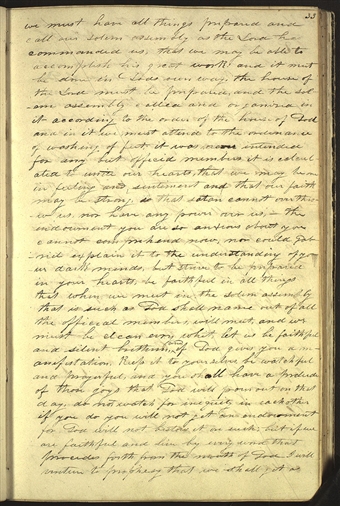 33
we must have all things prepared and
call our solem assembly as the Lord has
commanded us, that we may be able to
accomplish his great work: and it must
be done in Gods own way, the house of
the Lord must be prepared, and the sol
-em assembly called and organized in
it according to the order of the house of God
and in it we must attend to the ordinance
of washing of feet, it was never intended
for any but official members, it is calcul
-ated to unite our hearts, that we may be one
in feeling and sentiment and that our faith
may be strong, so that satan cannot over thro
-w us, nor have any power over us, - the
endowment you are so anxious about you
cannot comprehend now, nor could Gab
-riel explain it to the understanding of yo
-ur dark minds, but strive to be prepared
in your hearts, be faithful in all things
that when we meet in the solem assembly
that is such as God shall name out of all
the official members, will meet, and we
must be clean evry whit, let us be faithful
and silent brethren, and if God gives you a man
-ifestation, keep it to yourselves, be watchful
and prayerful, and you shall have a prelude
of those joys that God will pour out on that
day, do not watch for iniquity in each other
if you do you will not get an endowment
for God will not bestow it on such; but if we
are faithful and live by evry word that
procedes forth from the mouth of God I will
venture to prophesy that we shall get a